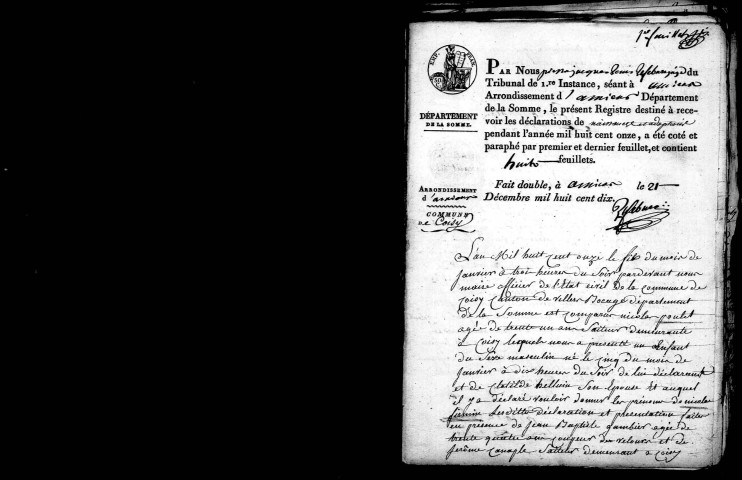 1er feuillet
EMP. FRAN.
DÉPARTEMENT
DE LA SOMME.
ARRONDISSEMENT
d'amiens
COMMUNE
de Coisy
PAR Nous pierre jacques Louis Lefebvre du
Tribunal de 1.re Instance, séant à amiens
Arrondissement d'amiens Département
de la Somme, le présent Registre destiné à rece-
voir les déclarations de naissance et adoption
pendant l'année mil huit cent onze, a été coté et
paraphé par premier et dernier feuillet, et contient
huit feuillets.
Fait double, à amiens le 21
Décembre mil huit cent dix.
Lefebvre
L'an Mil huit cent onze le six du mois de
janvier à trois heures du Soir pardevant nous
maire officier de l'Etat civil de la commune de
Coisy Canton de villers Bocage departement
de la Somme est comparu nicolas poulet
agé de trente un ans Satteur demeurante
à Coisy lequel nous a presenté un Enfant
du Sexe masculin né le cinq du mois de
janvier à dix heures du Soir de lui déclarant
et de Clotilde helluin Son épouse Et auquel
il y a déclaré vouloir donner les prenoms de nicolas
firmin Lesditte déclaration et presentation faites
en presence de Jean Baptiste gambier agé de
trente quatre ans coupeur de velours et de
jerôme Canaple Satteur demeurant à Coisy